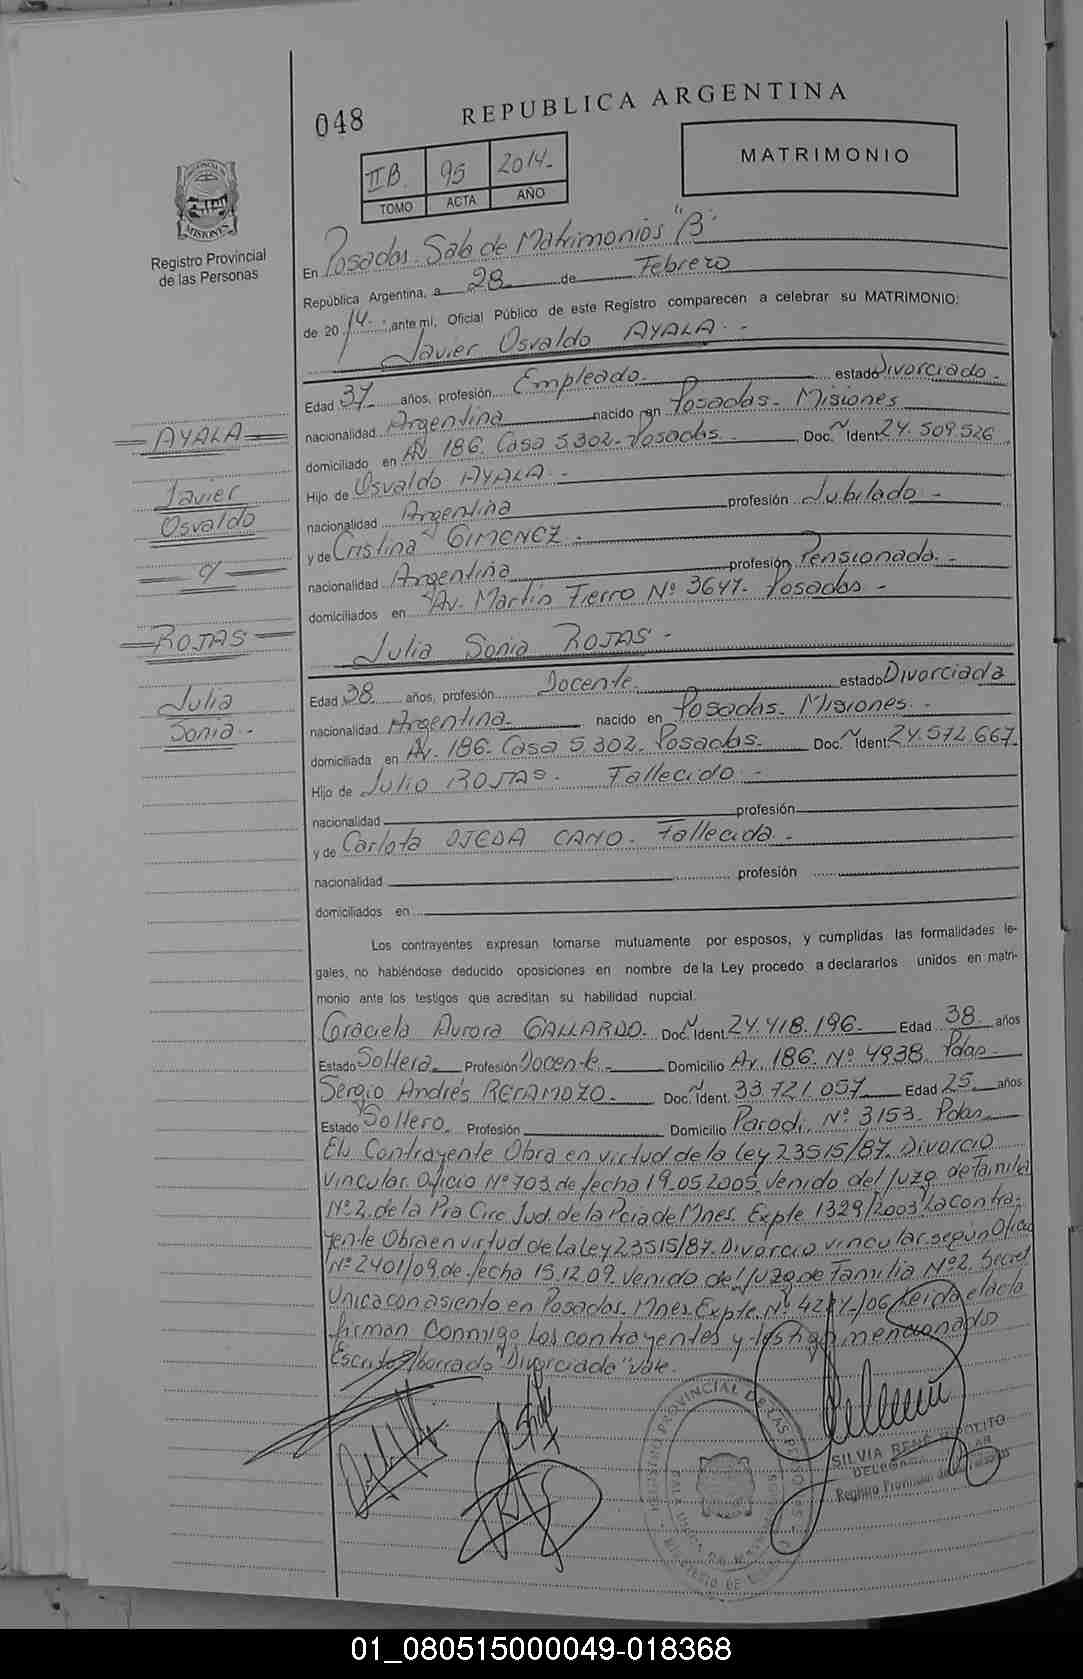 048
REPUBLICA ARGENTINA
MATRIMONIO
II B 95 2014.-
TOMO ACTA AÑO
PROVINCIA DE MISIONES
Registro Provincial
de las Personas
En Posadas. Sala de Matrimonios "B".
República Argentina, a 28 de Febrero
de 2014.- ,ante mí, Oficial Público de este Registro comparecen a celebrar su MATRIMONIO:
Javier Osvaldo AYALA.-
Edad 37 años, profesión Empleado. estado Divorciado.-
nacionalidad Argentina nacido en Posadas.- Misiones
domiciliado en Av. 186. Casa 5.302.- Posadas. Doc. Ident. 24.509.526
Hijo de Osvaldo AYALA.-
nacionalidad Argentina profesión Jubilado.-
y de Cristina GIMENEZ.-
nacionalidad Argentina profesión Pensionada.-
domiciliados en Av. Martín Fierro Nº 3647.- Posadas.-
Julia Sonia ROJAS.-
Edad 38 años, profesión Docente. estado Divorciada
nacionalidad Argentina. nacido en Posadas.- Misiones.-
domiciliada en Av. 186.- Casa 5.302.- Posadas. Doc. Ident. 24.572.667.
Hijo de Julio ROJAS. Fallecido.-
nacionalidad profesión
y de Carlota OJEDA CANO. Fallecida.-
nacionalidad profesión
domiciliados en
Los contrayentes expresan tomarse mutuamente por esposos, y cumplidas las formalidades le-
gales, no habiéndose deducido oposiciones en nombre de la Ley procedo a declararlos unidos en matri-
monio ante los testigos que acreditan su habilidad nupcial.
Graciela Aurora GALLARDO. Doc. Ident. 24.418.196. Edad 38. años
Estado Soltera. Profesión Docente. Domicilio Av. 186. Nº 4938. Pdas.-
Sergio Andrés Doc. Ident. 33.721.057 Edad 25 años
Estado Soltero. Profesión Domicilio Parodi. Nº 3153. Pdas.
El Contrayente Obra en virtud de la Ley 23515/87. Divorcio
vincular. Oficio Nº 703 de fecha 19.05.2005, venido del Juzg. de Familia
Nº 2 de la Pra Circ. Jud. de la Pcia de Mnes. Expte 1329/2003. La contra-
yente Obra en virtud de la Ley 23515/87. Divorcio vincular según Oficio
Nº 2401/09 de fecha 15.12.09. Venido del Juzg. de Familia Nº 2. Secret.
Unica con asiento en Posadas. Mnes. Expte. Nº /06 Leida el acta
firman conmigo los contrayentes y testigos mencionados
Escrito s/borrado "Divorciada" Vale.
AYALA
Javier
Osvaldo
c/
ROJAS
Julia
Sonia.-
REGISTRO PROVINCIAL DE LAS PERSONAS
SILVIA RENE HIPOLITO
Registro Provincial de las Personas
01_080515000049-018368